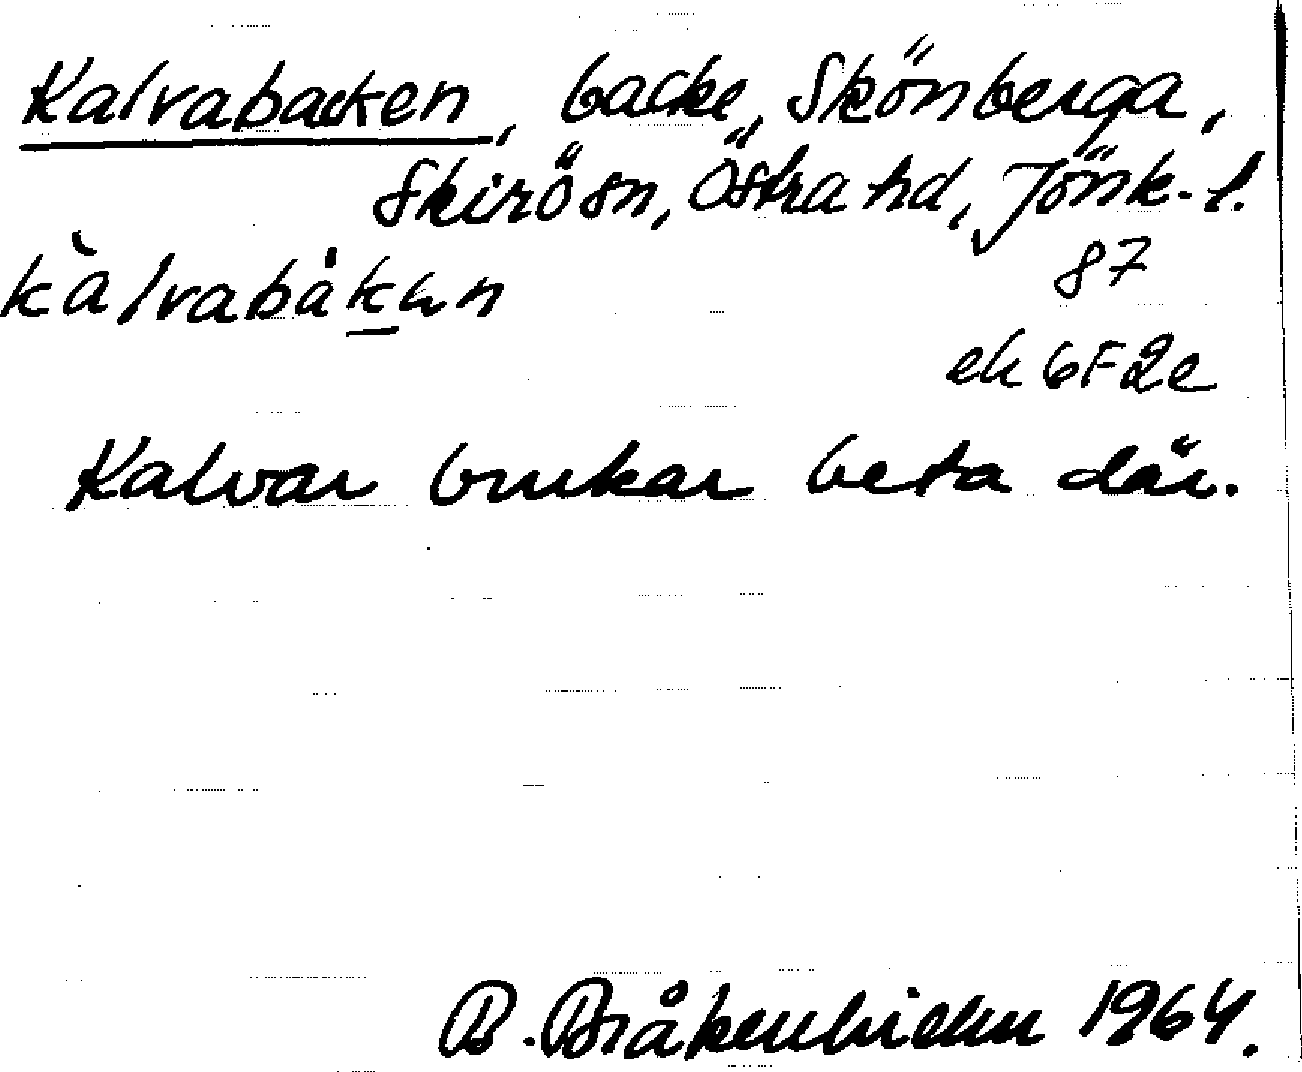 Kalvabacken, backe, Skönberga,
Skirö sn, Östra hd, Jönk. l.
kàlvabàkan
87
ek 6F2e
Kalvar brukar beta där.
B. Bråkenhielm 1964.